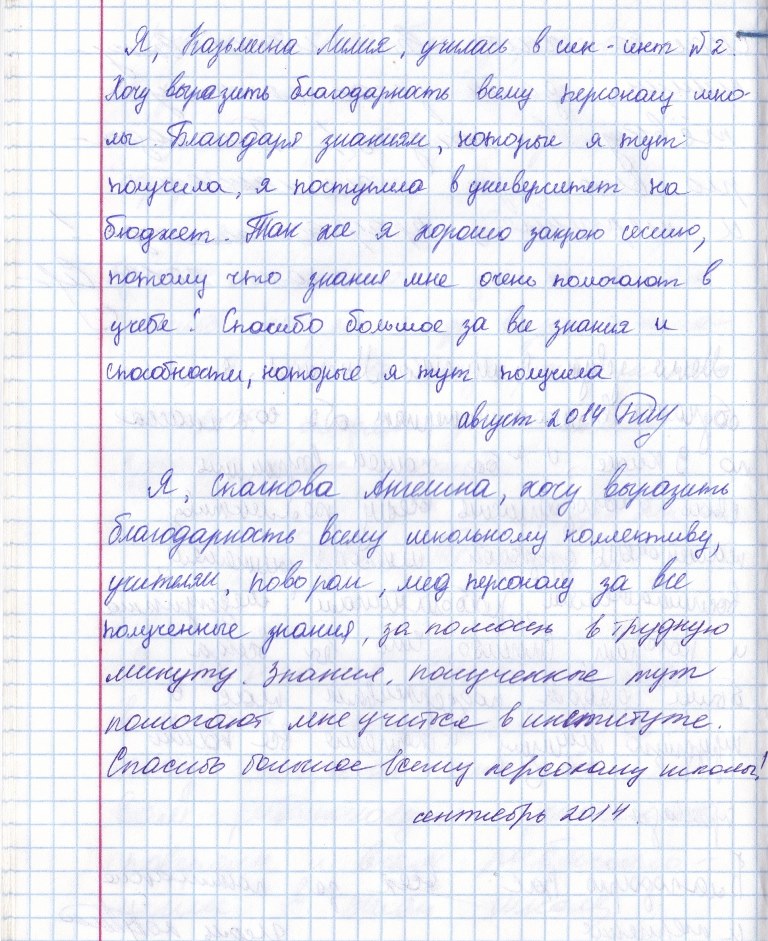 Я, Казьмина Лилия, училась в шк-инт №2.
Хочу выразить благодарность всему персоналу шко-
лы. Благодаря знаниям, которые я тут
получила, я поступила в университет на
бюджет. Так же я хорошо закрою сессию,
потому что знания мне очень помогают в
учебе! Спасибо большое за все знания и
способности, которые я тут получила
август 2014
Я, Спачкова Ангелина, хочу выразить
благодарность всему школьному коллективу,
учителям, поворам, мед персоналу за все
полученные знания, за помощь в трудную
минуту. Знания, полученные тут
помогают мне учиться в институте.
Спасибо большое всему персоналу школы!
сентябрь 2014.